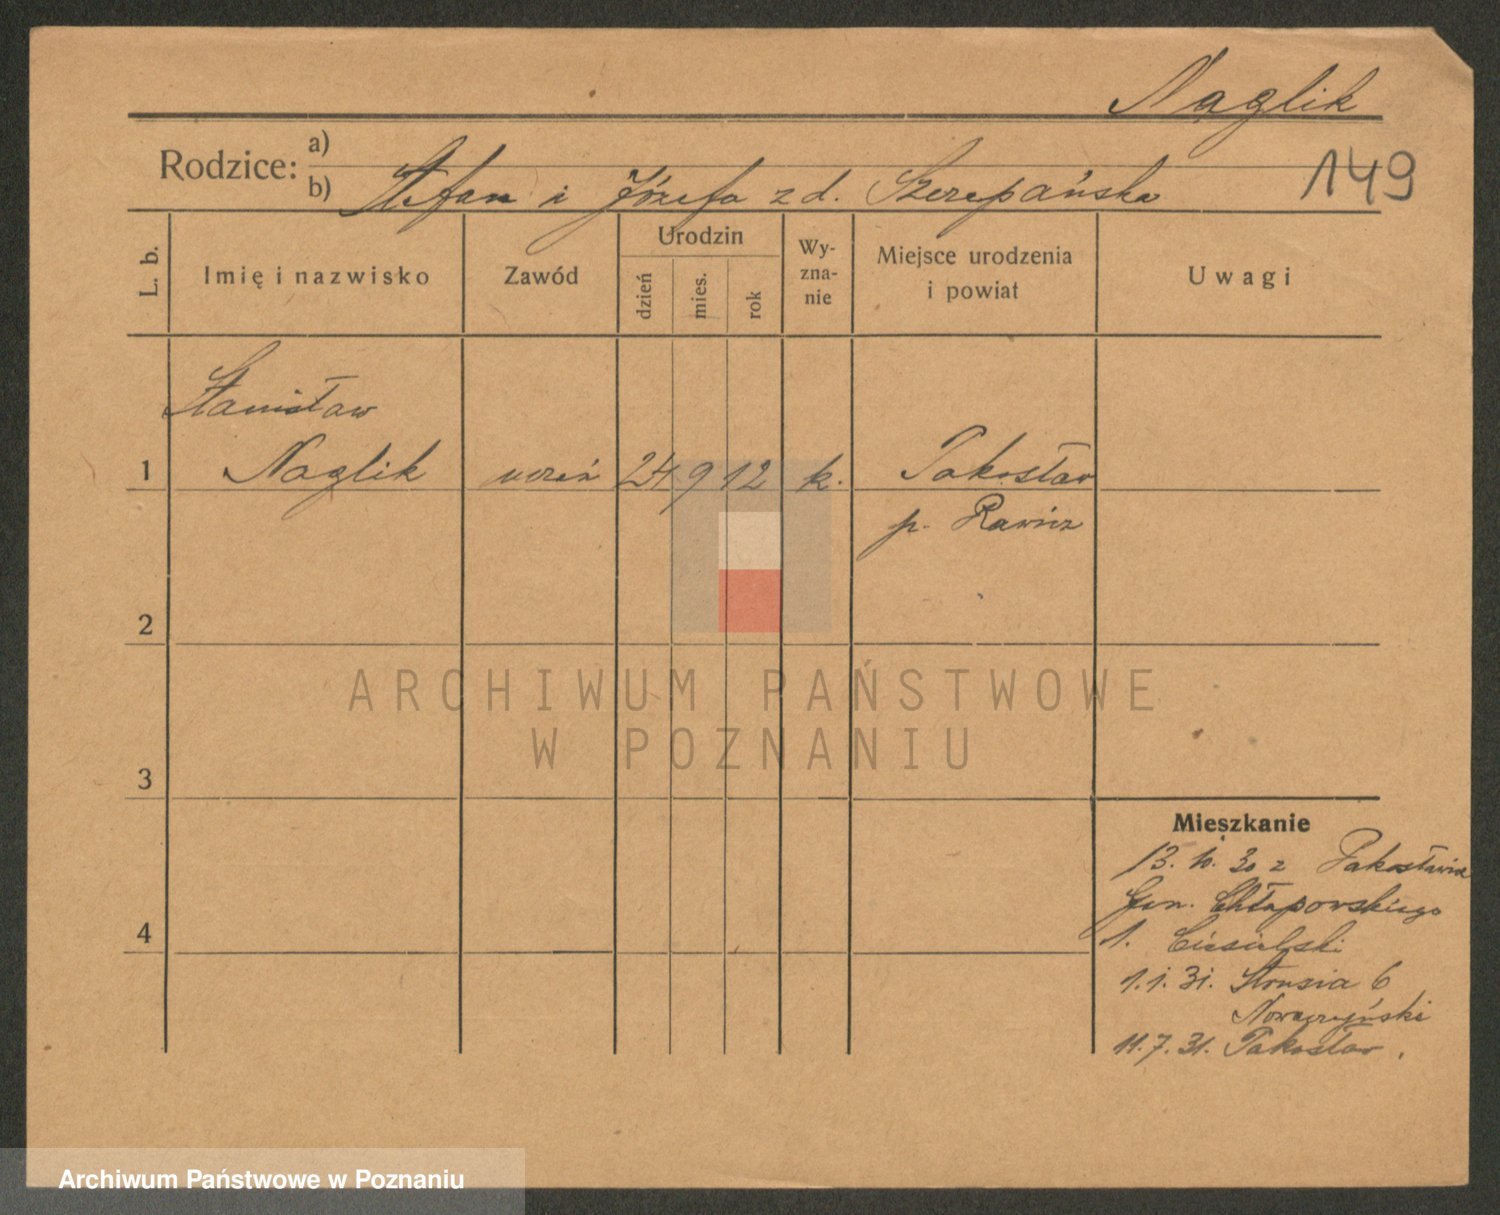 Naglik
Rodzice:
a)
b) Stefan i Józefa z d. Szczepańska
149
L. b.
Imię i nazwisko
Zawód
Urodzin
dzień
mies.
rok
Wy-
zna-
nie
Miejsce urodzenia
i powiat
Uwagi
Stanisław
1 Naglik uczeń 24 9 12 k. Pakosław
p. Rawicz
2
ARCHIWUM PAŃSTWOWE
W POZNANIU
3
Mieszkanie
13. 10. 30 z Pakosławia
Gen. Chłapowskiego
4
1. Ciesielski
1. 1. 31. Strusia 6
Nowaczyński
11. 7. 31. Pakosław.
Archiwum Państwowe w Poznaniu